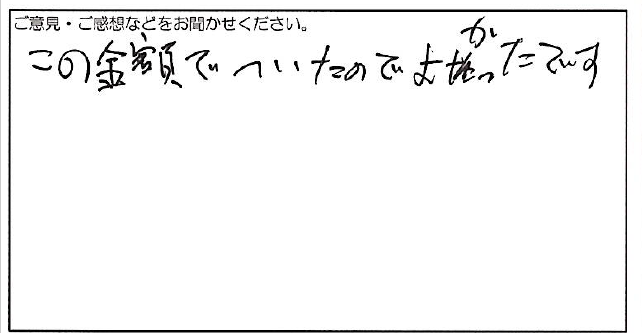 ご意見・ご感想などをお聞かせください。
この金額でついたのでよかったです